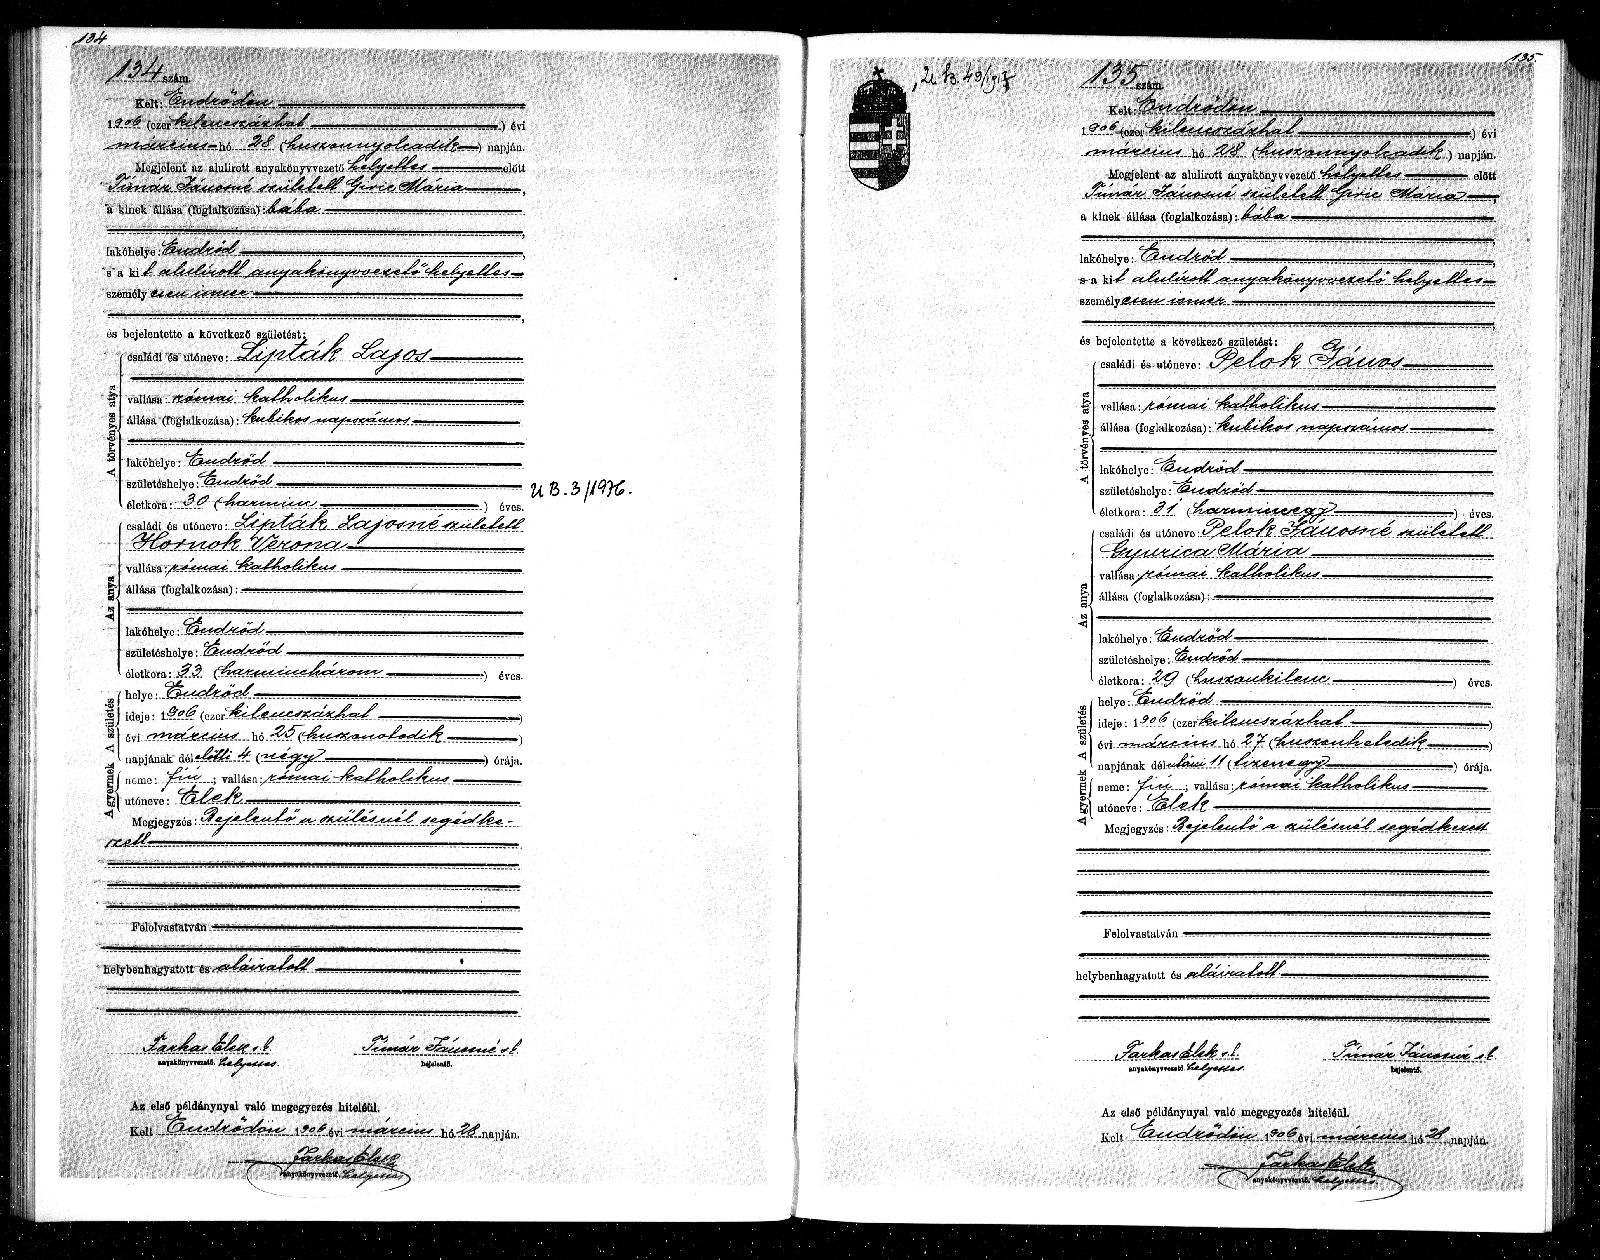 134
134 szám.
Kelt: Endrődön
1906 (ezer kilencszázhat) évi
március hó 28 (huszonnyolcadik) napján.
Megjelent az alulirott anyakönyvvezető helyettes előtt
Tímár Jánosné született Giric Mária,
a kinek állása (foglalkozása): bába
lakóhelye: Endrőd,
s a kit alulírott anyakönyvvezető helyettes
személyesen ismer
,
és bejelentette a következő születést:
A törvényes atya
családi és utóneve: Lipták Lajos
vallása: római katholikus
állása (foglalkozása): kubikos napszámos
lakóhelye: Endrőd
születéshelye: Endrőd
életkora: 30 (harminc) éves.
U B. 3/1976.
Az anya
családi és utóneve: Lipták Lajosné született
Hornok Verona
vallása: római katholikus
állása (foglalkozása):
lakóhelye: Endrőd
születéshelye: Endrőd
életkora: 33 (harminchárom) éves.
A születés
helye: Endrőd
ideje: 1906 (ezer kilencszázhat)
évi március hó 25 (huszonötödik)
napjának délelőtti 4 (négy) órája.
A gyermek
neme: fiú; vallása: római katholikus
utóneve: Elek
Megjegyzés: Bejelentő a szülésnél segédke-
zett
Felolvastatván
helybenhagyatott és aláíratott
Farkas Elek s.k. Tímár Jánosné s.k.
anyakönyvvezető. helyettes bejelentő.
Az első példánynyal való megegyezés hiteléül.
Kelt Endrődön 1906 évi március hó 28 napján.
Farkas Elek
anyakönyvvezető. helyettes
135
135 szám.
Kelt: Endrődön
1906 (ezer kilencszázhat) évi
március hó 28 (huszonnyolcadik) napján.
Megjelent az alulirott anyakönyvvezető helyettes előtt
Tímár Jánosné született Giric Mária,
a kinek állása (foglalkozása): bába
lakóhelye: Endrőd,
s a kit alulírott anyakönyvvezető helyettes
személyesen ismer
és bejelentette a következő születést:
A törvényes atya
családi és utóneve: Pelok János
vallása: római katholikus
állása (foglalkozása): kubikos napszámos
lakóhelye: Endrőd
születéshelye: Endrőd
életkora: 31 (harmincegy) éves.
Az anya
családi és utóneve: Pelok Jánosné született
Gyurica Mária
vallása: római katholikus
állása (foglalkozása):
lakóhelye: Endrőd
születéshelye: Endrőd
életkora: 29 (huszonkilenc) éves.
A születés
helye: Endrőd
ideje: 1906 (ezer kilencszázhat)
évi március hó 27 (huszonhetedik)
napjának délutáni 11 (tizenegy) órája.
A gyermek
neme: fiú; vallása: római katholikus
utóneve: Elek
Megjegyzés: Bejelentő a szülésnél segédkezett
Felolvastatván
helybenhagyatott és aláíratott
Farkas Elek s.k. Tímár Jánosné s.k.
anyakönyvvezető. helyettes bejelentő.
Az első példánynyal való megegyezés hiteléül.
Kelt Endrődön 1906 évi március hó 28 napján.
Farkas Elek
anyakönyvvezető. helyettes